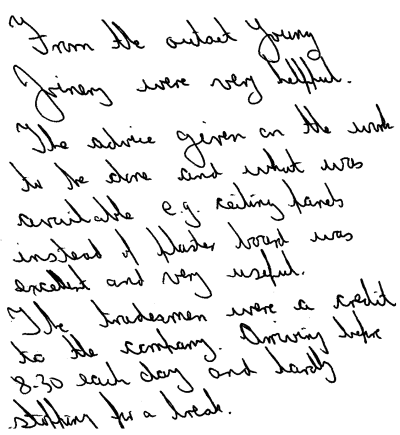 From the outset Young
Joinery were very helpful.
The advice given on the work
to be done and what was
available e.g. ceiling panels
instead of plaster board was
excellent and very useful.
The tradesmen were a credit
to the company. Arriving before
8.30 each day and hardly
stopping for a break.